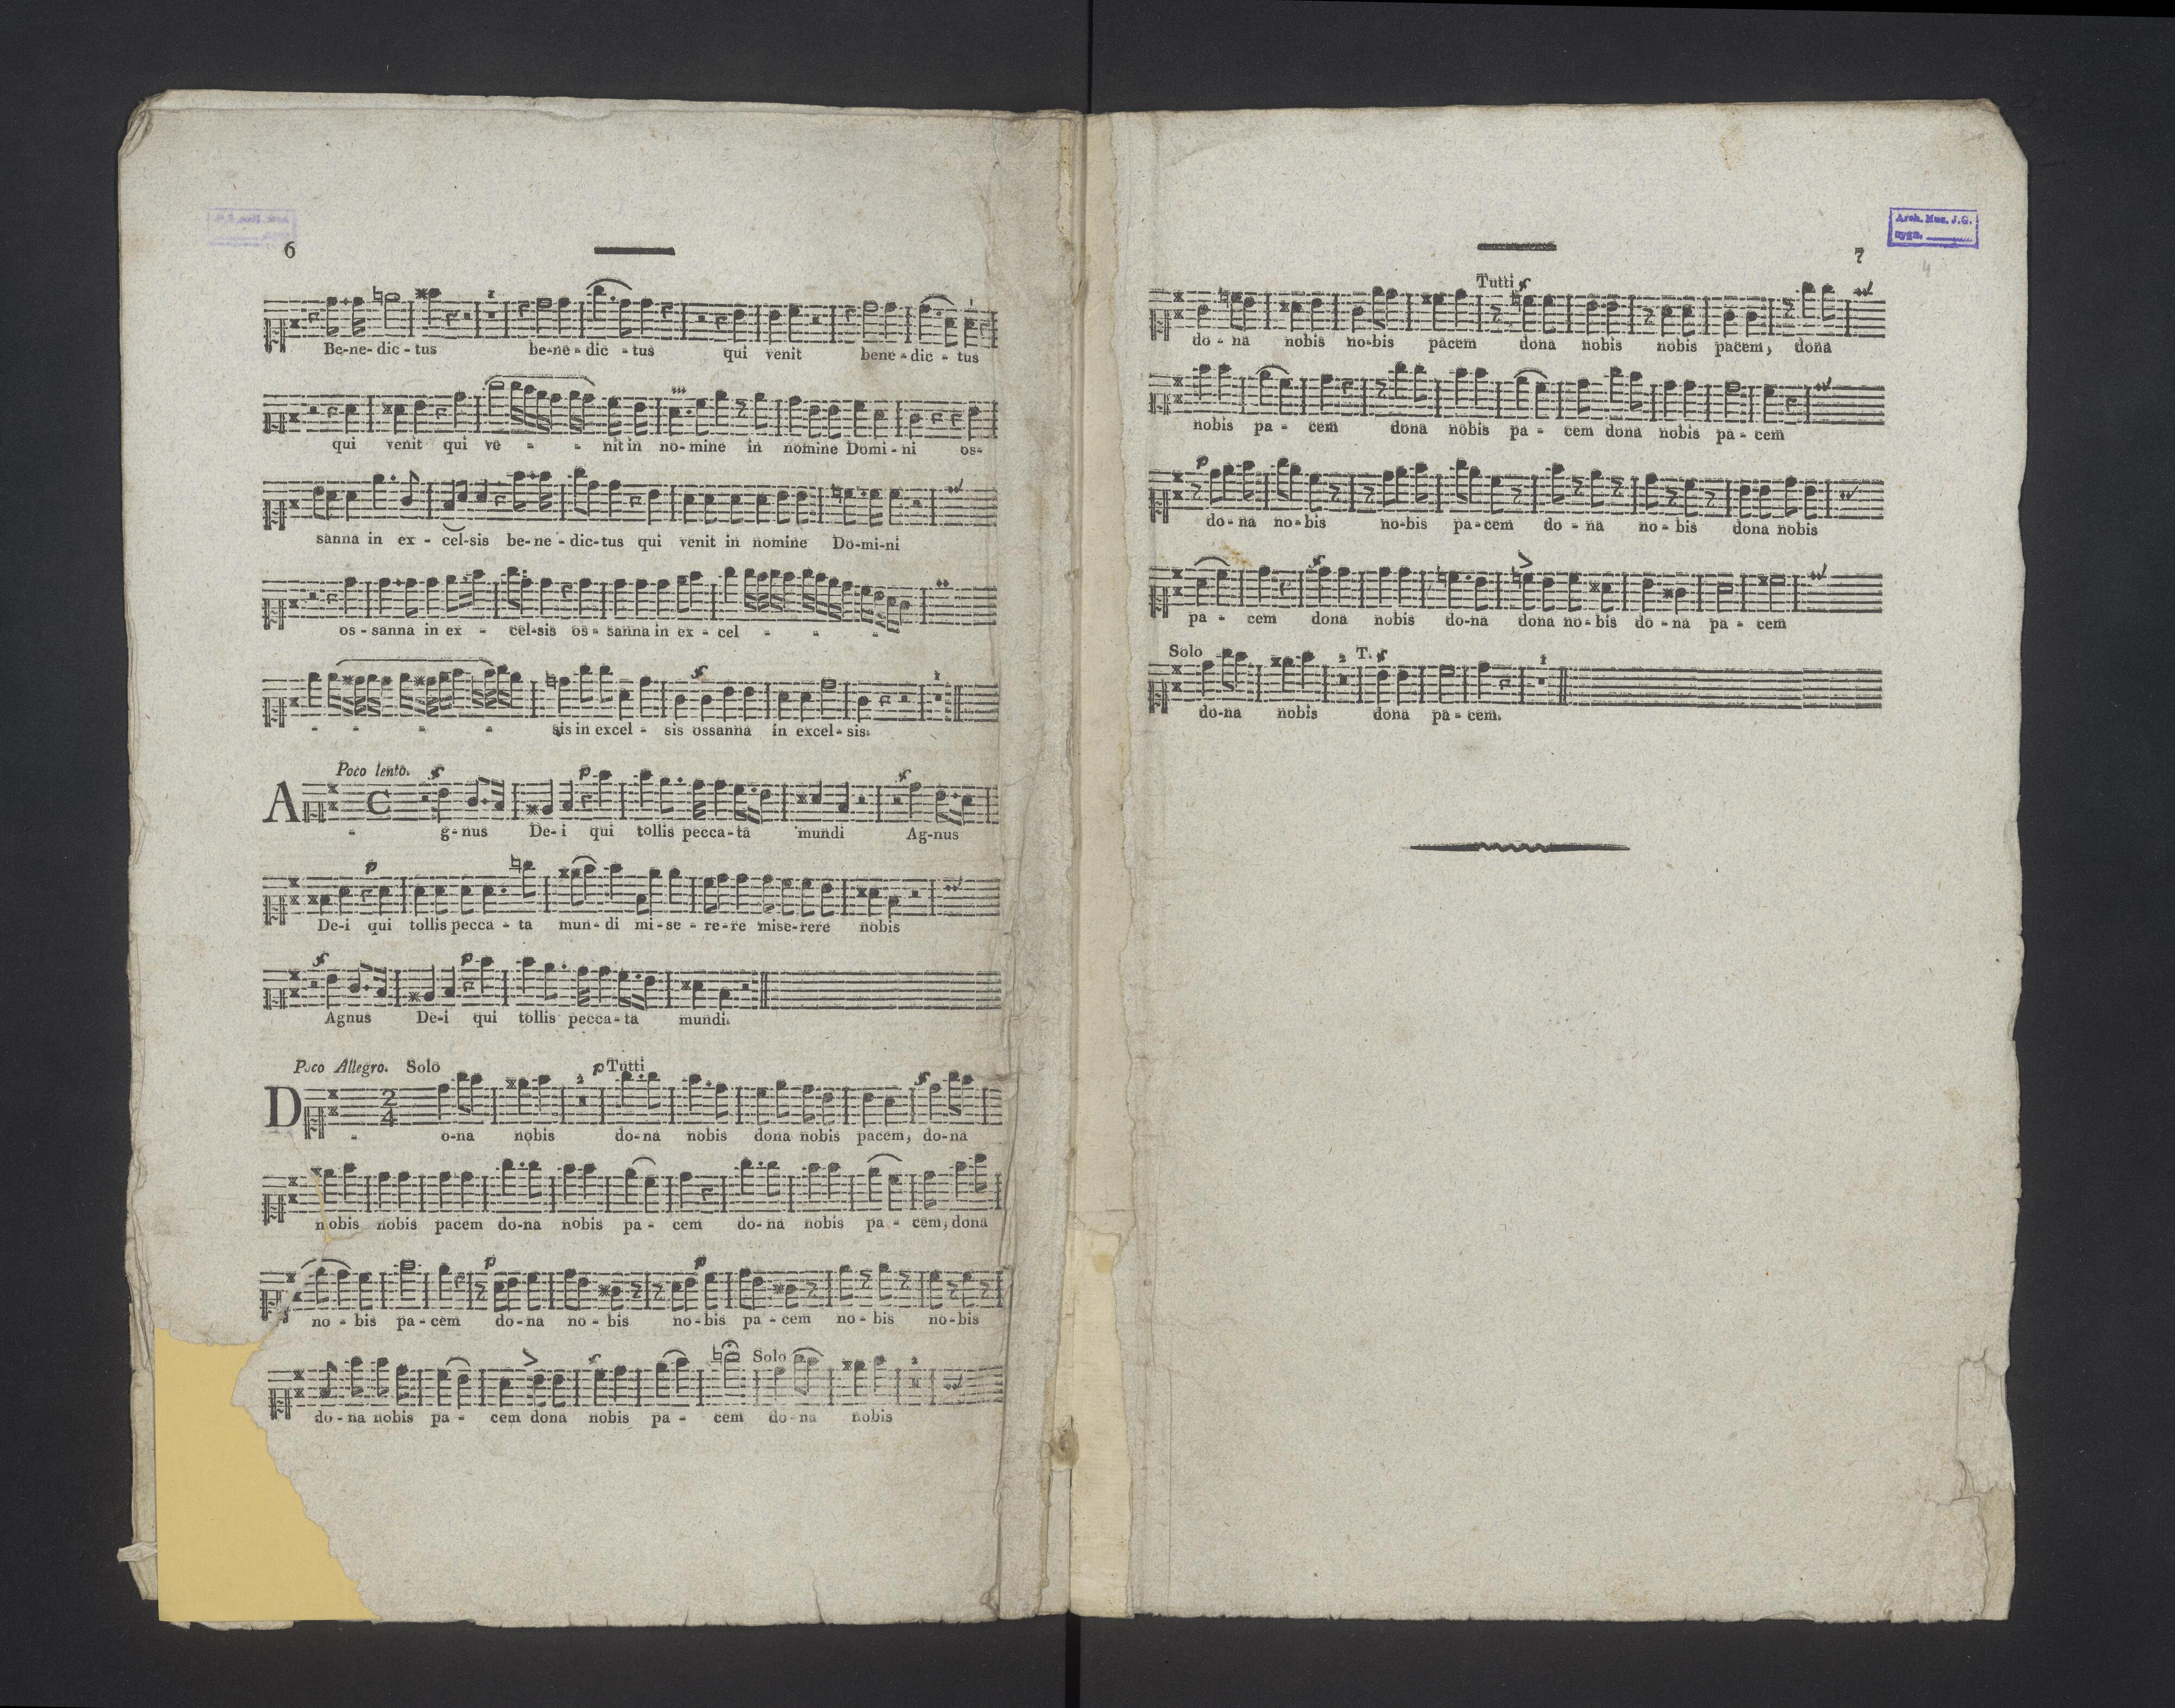 6
Be-ne-dic-tus be-ne-dic-tus qui venit bene-dic-tus
qui venit qui ve- - - nit in no-mine in nomine Domi-ni os-
sanna in ex-cel-sis be-ne-dic-tus qui venit in nomine Do-mi-ni
os-sanna in ex-cel-sis os-sanna in ex-cel - - - -
- - - - sis in excel-sis ossanna in excel-sis.
Poco lento.
A-g-nus De-i qui tollis pecca-ta mundi Ag-nus
De-i qui tollis pecca-ta mun-di mi-se-re-re mise-rere nobis
Agnus De-i qui tollis pecca-ta mundi.
Poco Allegro. Solo p Tutti
D-o-na nobis do-na nobis dona nobis pacem, do-na
nobis nobis pacem do-na nobis pa-cem do-na nobis pa-cem, dona
no-bis pa-cem do-na no-bis no-bis pa-cem no-bis no-bis
Solo
do-na nobis pa-cem dona nobis pa-cem do-na nobis
Arch. Muz. J.G.
sygn.
7
4
Tutti
do-na nobis no-bis pacem dona nobis nobis pacem, dona
nobis pa-cem dona nobis pa-cem dona nobis pa-cem
p
do-na no-bis no-bis pa-cem do-na no-bis dona nobis
pa-cem dona nobis do-na dona no-bis do-na pa-cem
Solo T.
do-na nobis dona pa-cem.